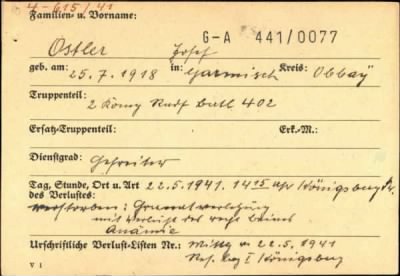 4-615/41
Familien- u. Vorname:
G-A 441/0077
Ostler Josef
geb. am: 25.7.1918 in: Garmisch Kreis: Obbay
Truppenteil:
2 Komp Radf Batl 402
Ersatz-Truppenteil: Erk.-M.:
Dienstgrad: Gefreiter
Tag, Stunde, Ort u. Art 22.5.1941. 14 15 Königsberg
des Verlustes:
verstorben: Granatverletzung
mit Verlust des recht Beines
Anämie
Urschriftliche Verlust-Listen Nr.: v. 22.5.1941
Res. I Königsberg
V 1